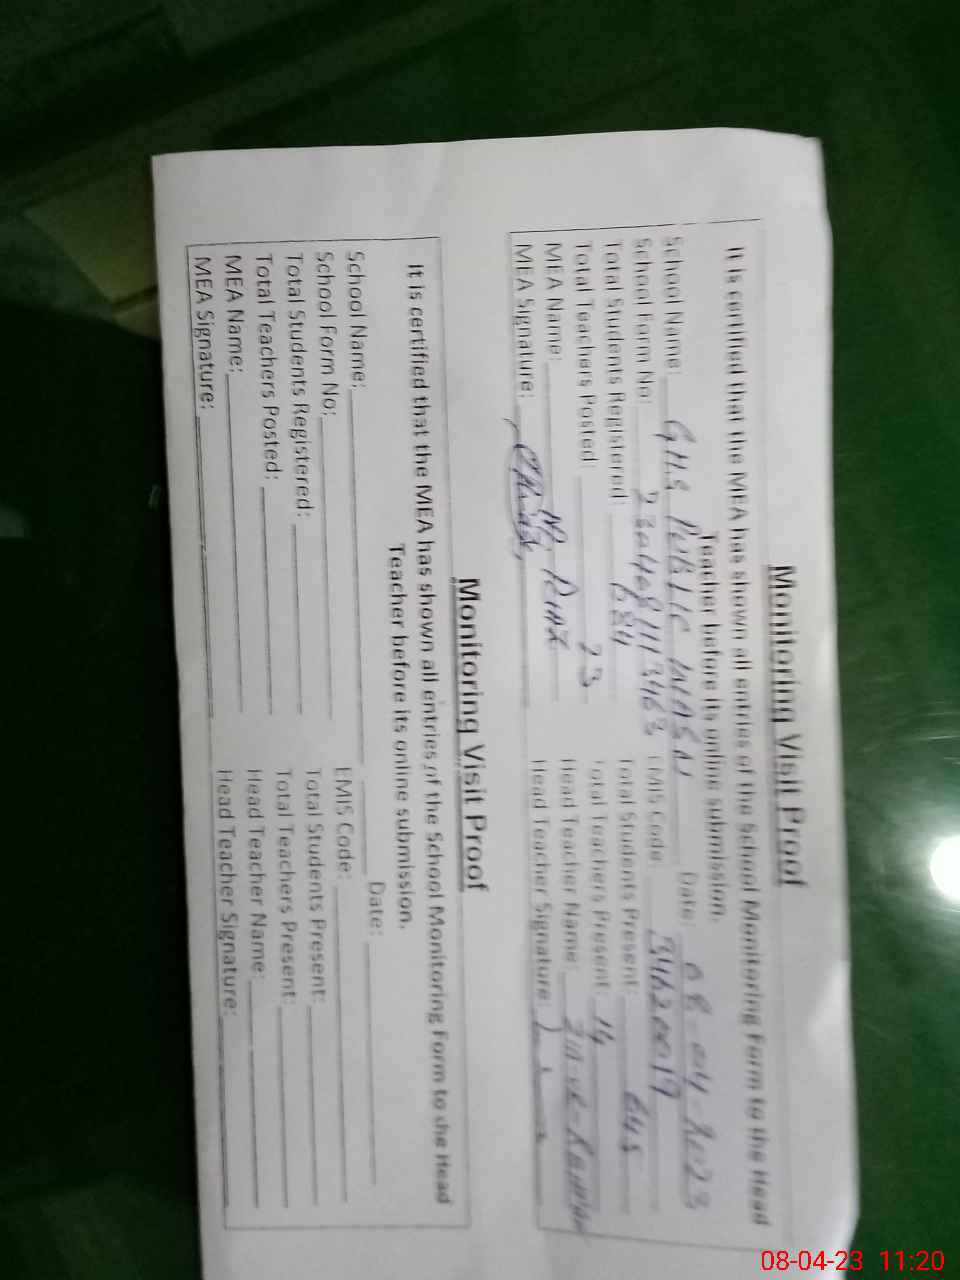 Monitoring Visit Proof
It is certified that the MEA has shown all entries of the School Monitoring Form to the Head
Teacher before its online submission.
School Name: G.H.S PUBLIC Date: 08-04-2023
School Form No: 2304081113463 EMIS Code: 34620019
Total Students Registered: 684 Total Students Present: 645
Total Teachers Posted: 23 Total Teachers Present: 14
MEA Name: M. RIAZ Head Teacher Name:
MEA Signature: Head Teacher Signature:
Monitoring Visit Proof
It is certified that the MEA has shown all entries of the School Monitoring Form to the Head
Teacher before its online submission.
School Name: Date:
School Form No: EMIS Code:
Total Students Registered: Total Students Present:
Total Teachers Posted: Total Teachers Present:
MEA Name: Head Teacher Name:
MEA Signature: Head Teacher Signature:
08-04-23 11:20